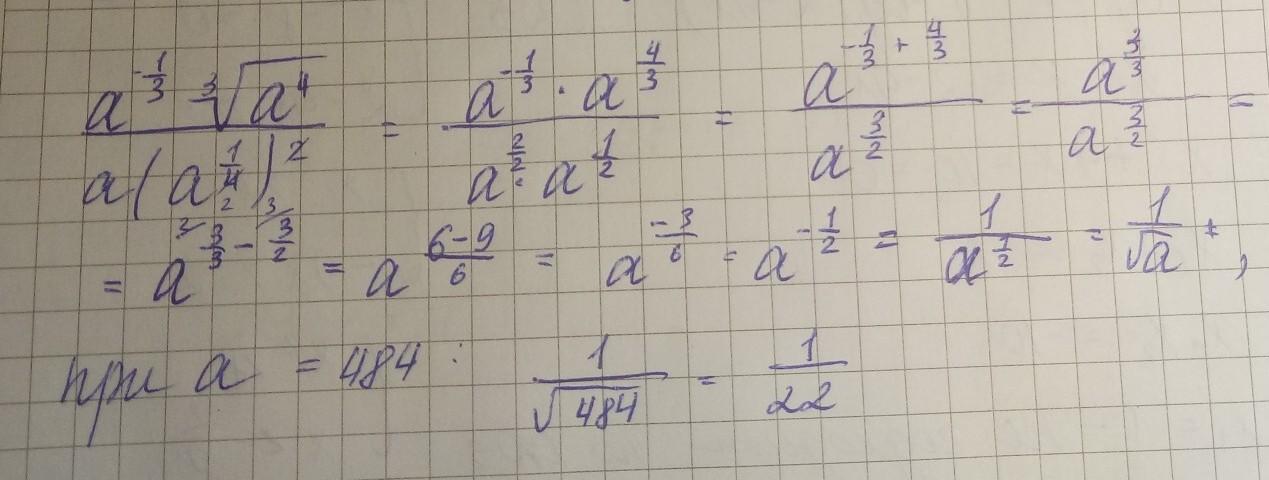 a^{-1/3} ∛(a^4) / a(a^{1/4})^2 = a^{-1/3} · a^{4/3} / a^{2/2} · a^{1/2} = a^{-1/3 + 4/3} / a^{3/2} = a^{3/3} / a^{3/2} =
= a^{3/3 - 3/2} = a^{(6-9)/6} = a^{-3/6} = a^{-1/2} = 1/a^{1/2} = 1/√a ,
при a = 484 : 1/√484 = 1/22